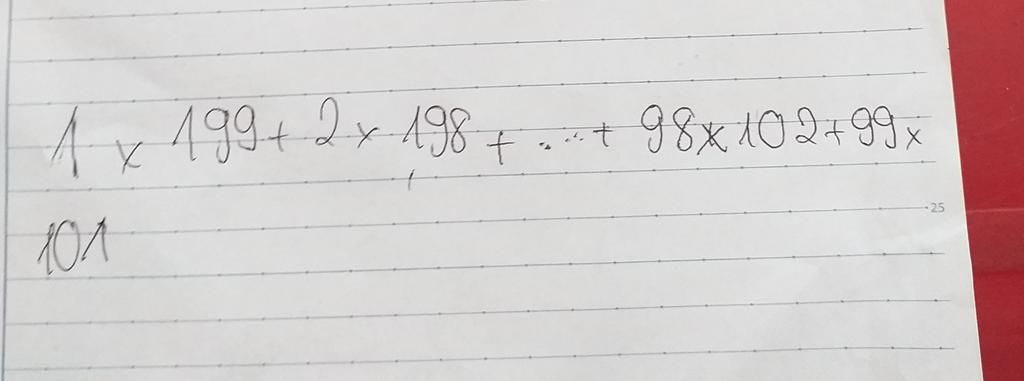 1 x 199 + 2 x 198 + ... + 98 x 102 + 99 x
101
25